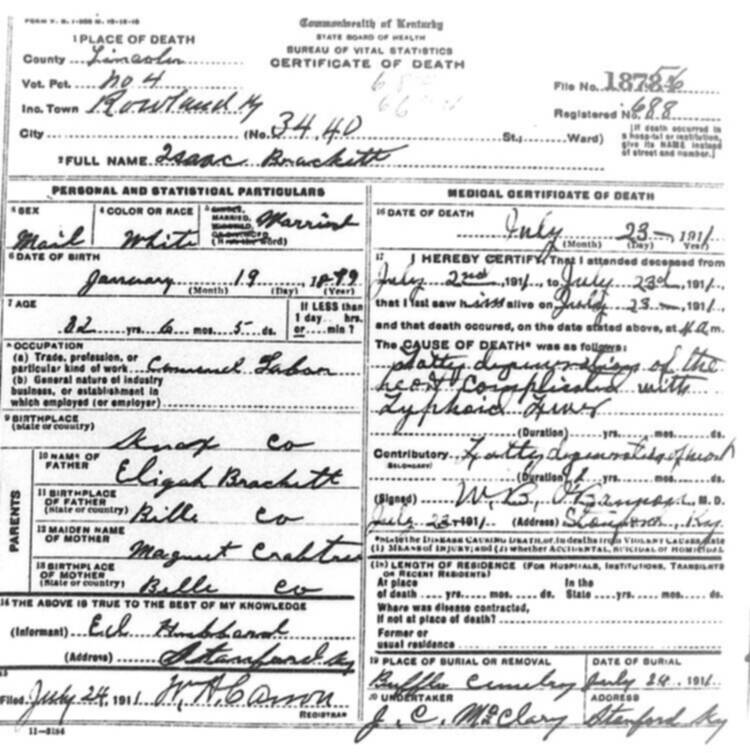 FORM V. S. 1-
Commonwealth of Kentucky
STATE BOARD OF HEALTH
BUREAU OF VITAL STATISTICS
CERTIFICATE OF DEATH
1 PLACE OF DEATH
County Lincoln
Vot. Pct. No 4
Inc. Town Rowland Ky
City (No. 34.40 St.; Ward)
File No. 18756
Registered No. 688
[If death occurred in a hospital or institution, give its NAME instead of street and number.]
2 FULL NAME Isaac Brackett
PERSONAL AND STATISTICAL PARTICULARS
3 SEX Mail
4 COLOR OR RACE White
5 SINGLE, MARRIED, WIDOWED, OR DIVORCED (Write the word) Married
6 DATE OF BIRTH
January 19 1879
(Month) (Day) (Year)
7 AGE
32 yrs. 6 mos. 5 ds.
If LESS than 1 day hrs. or min?
8 OCCUPATION
(a) Trade, profession, or particular kind of work Labor
(b) General nature of industry business, or establishment in which employed (or employer)
9 BIRTHPLACE
(State or country)
Knox Co
PARENTS
10 NAME OF FATHER
Eligah Brackett
11 BIRTHPLACE OF FATHER
(State or country) Bille Co
12 MAIDEN NAME OF MOTHER
Magruet Crabtree
13 BIRTHPLACE OF MOTHER
(State or country) Bille Co
14 THE ABOVE IS TRUE TO THE BEST OF MY KNOWLEDGE
(Informant) Ed Hubbard
(Address) Stanford Ky
15
Filed July 24, 1911
REGISTRAR
11-3184
MEDICAL CERTIFICATE OF DEATH
16 DATE OF DEATH
July 23 1911
(Month) (Day) (Year)
17 I HEREBY CERTIFY, That I attended deceased from
July 2nd, 1911, to July 23d, 1911,
that I last saw him alive on July 23, 1911
and that death occured, on the date stated above, at m.
The CAUSE OF DEATH* was as follows:
Fatty degeneration of the
heart Complicated with
Typhoid Fever
(Duration) yrs. mos. ds.
Contributory Fatty degeneration of heart
(SECONDARY)
(Duration) yrs. mos. ds.
(Signed) W. B. O'Bannon, M. D.
July 23 1911 (Address) Stanford, Ky
*State the DISEASE CAUSING DEATH, or, in deaths from VIOLENT CAUSES, state
(1) MEANS OF INJURY; and (2) whether ACCIDENTAL, SUICIDAL or HOMICIDAL
18 LENGTH OF RESIDENCE (FOR HOSPITALS, INSTITUTIONS, TRANSIENTS
OR RECENT RESIDENTS)
At place of death yrs. mos. ds. In the State yrs. mos. ds.
Where was disease contracted,
If not at place of death?
Former or
usual residence
19 PLACE OF BURIAL OR REMOVAL DATE OF BURIAL
Buffalo Cemetery July 24 1911
20 UNDERTAKER ADDRESS
J. C. McClary Stanford Ky